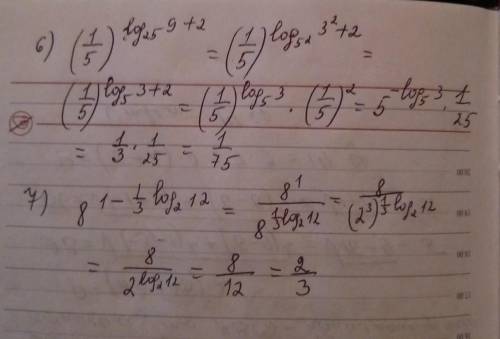 6) (1/5)^(log₂₅ 9 + 2) = (1/5)^(log_(5²) 3² + 2) =
(1/5)^(log₅ 3 + 2) = (1/5)^(log₅ 3) · (1/5)² = 5^(-log₅ 3) · 1/25
= 1/3 · 1/25 = 1/75
7) 8^(1 - 1/3 log₂ 12) = 8¹/8^(1/3 log₂ 12) = 8/(2³)^(1/3 log₂ 12)
= 8/2^(log₂ 12) = 8/12 = 2/3